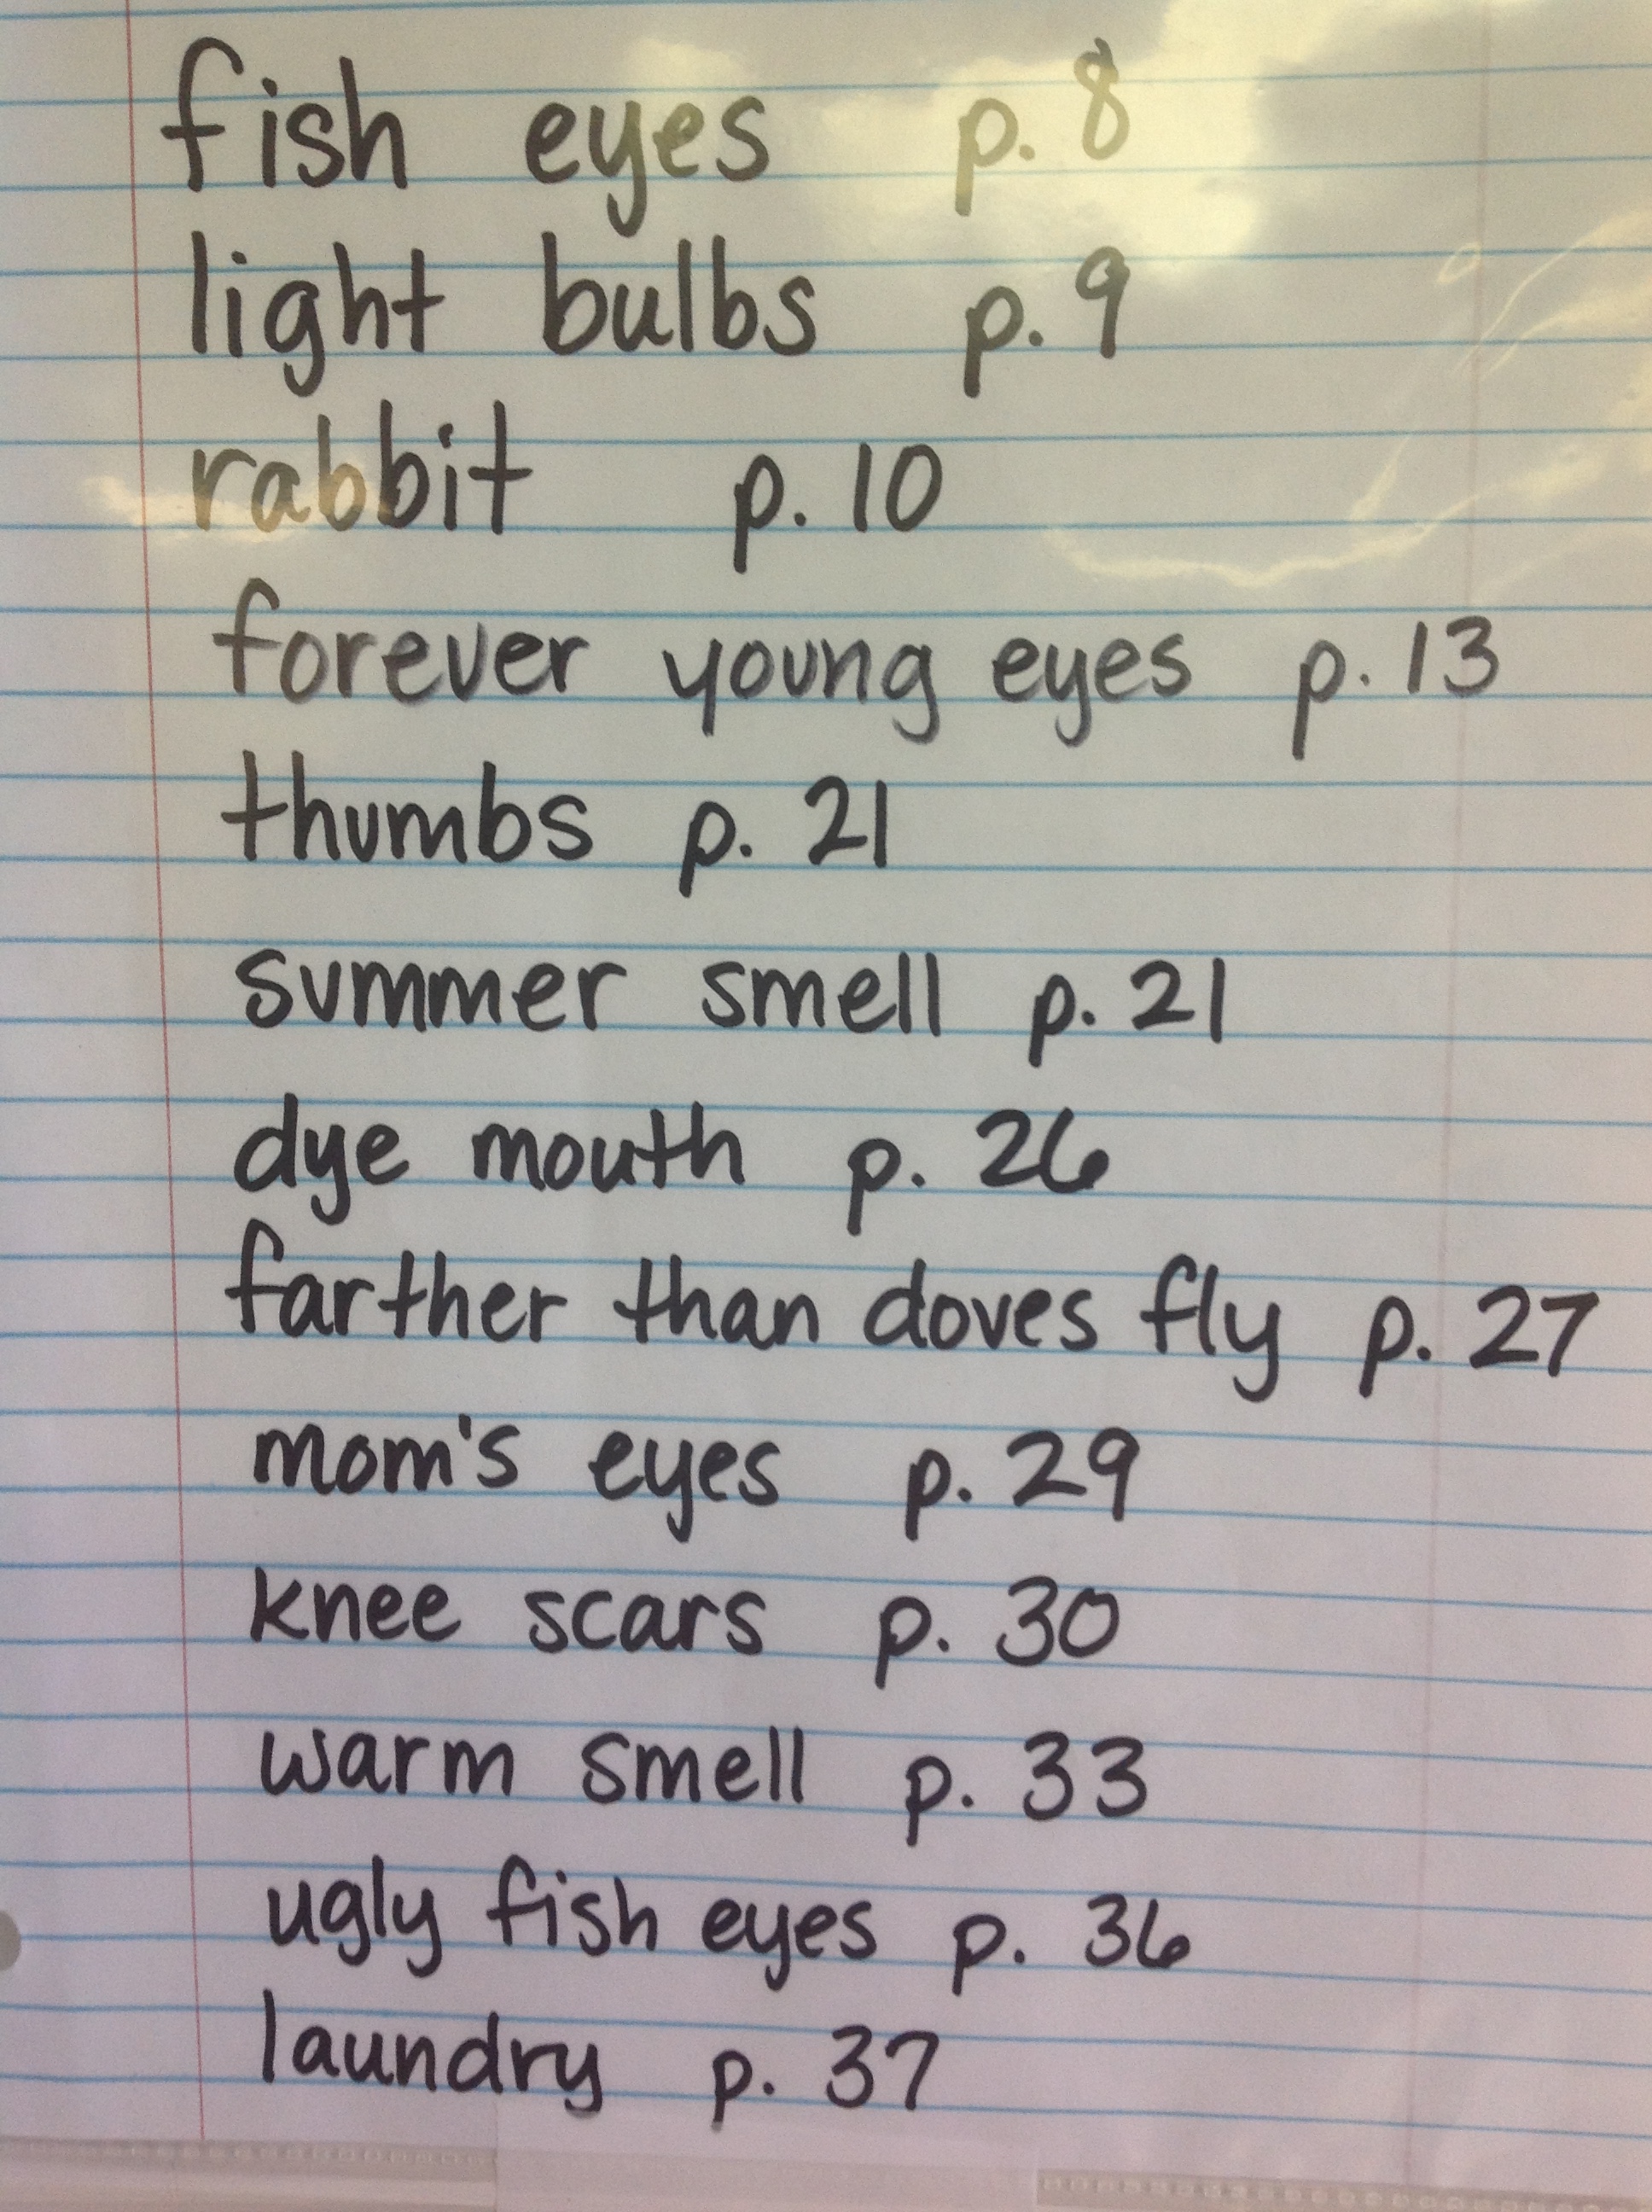 fish eyes p. 8
light bulbs p. 9
rabbit p. 10
forever young eyes p. 13
thumbs p. 21
summer smell p. 21
dye mouth p. 26
farther than doves fly p. 27
mom's eyes p. 29
knee scars p. 30
warm smell p. 33
ugly fish eyes p. 36
laundry p. 37